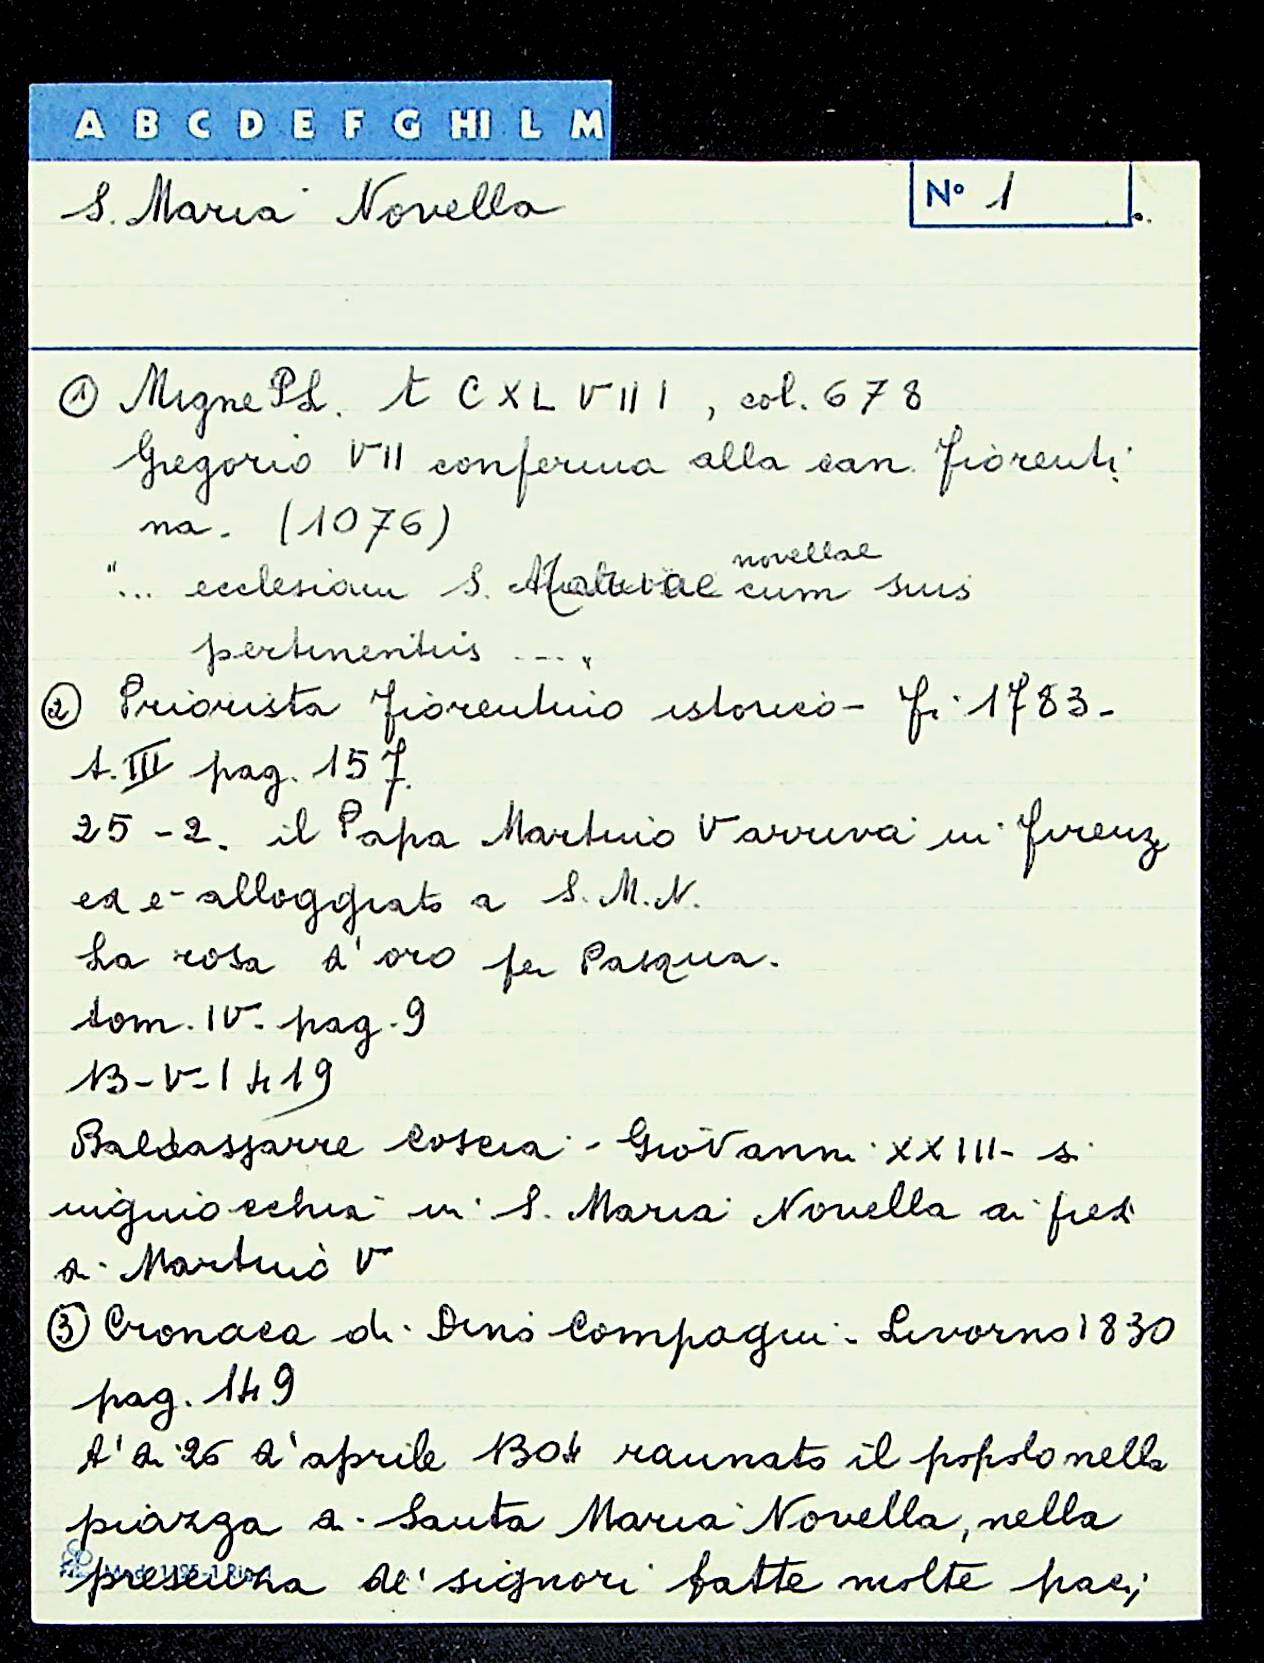 A B C D E F G HI L M
S. Maria Novella
N° 1
① Migne PL. t CXLVIII, col. 678
Gregorio VII conferma alla can. fiorenti
na. (1076)
"... ecclesiam S. Mariae novellae cum suis
pertinentiis ...."
② Priorista fiorentino istorico - Fi. 1783 -
t. III pag. 157.
25 - 2. il Papa Martino V arriva in Firenz
ed è alloggiato a S.M.N.
La rosa d'oro per Pasqua.
tom. IV. pag. 9
13-V-1419
Baldassarre Coscia - Giovanni XXIII - si
inginocchia in S. Maria Novella ai piedi
di Martino V
③ Cronaca di Dino Compagni - Livorno 1830
pag. 149
A' di 26 d'aprile 1304 raunato il popolo nella
piazza di Santa Maria Novella, nella
presenza de' signori fatte molte paci,